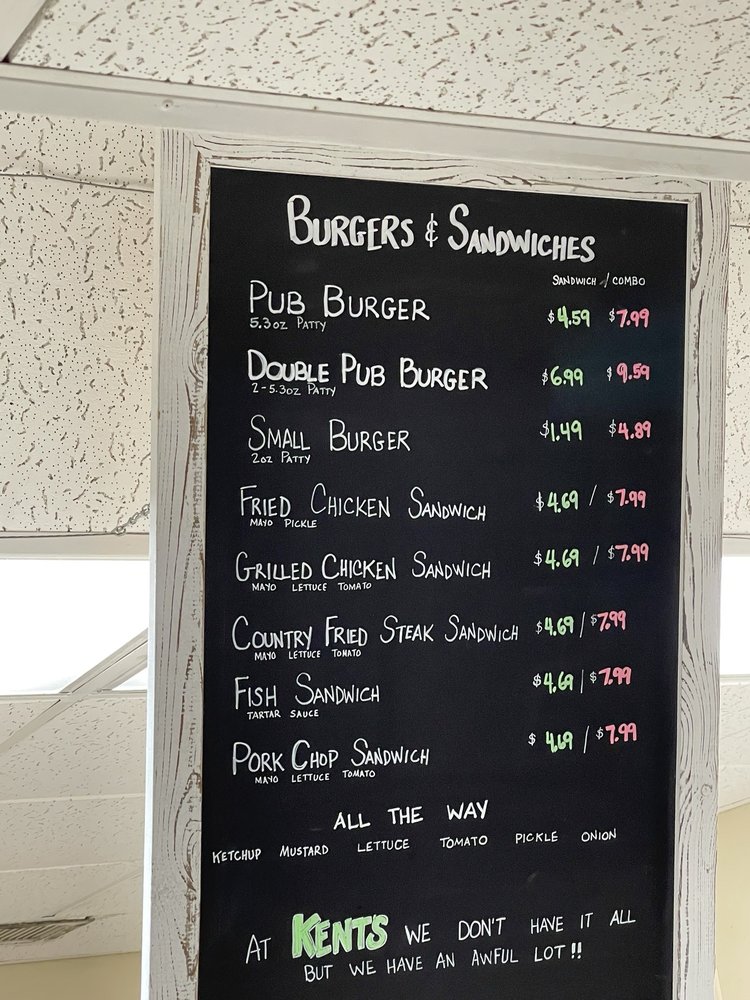 BURGERS & SANDWICHES
SANDWICH / COMBO
PUB BURGER $4.59 $7.99
5.3oz PATTY
DOUBLE PUB BURGER $6.99 $9.59
2-5.3oz PATTY
SMALL BURGER $1.49 $4.89
2oz PATTY
FRIED CHICKEN SANDWICH $4.69 / $7.99
MAYO PICKLE
GRILLED CHICKEN SANDWICH $4.69 / $7.99
MAYO LETTUCE TOMATO
COUNTRY FRIED STEAK SANDWICH $4.69 / $7.99
MAYO LETTUCE TOMATO
FISH SANDWICH $4.69 / $7.99
TARTAR SAUCE
PORK CHOP SANDWICH $4.69 / $7.99
MAYO LETTUCE TOMATO
ALL THE WAY
KETCHUP MUSTARD LETTUCE TOMATO PICKLE ONION
AT KENT'S WE DON'T HAVE IT ALL
BUT WE HAVE AN AWFUL LOT!!